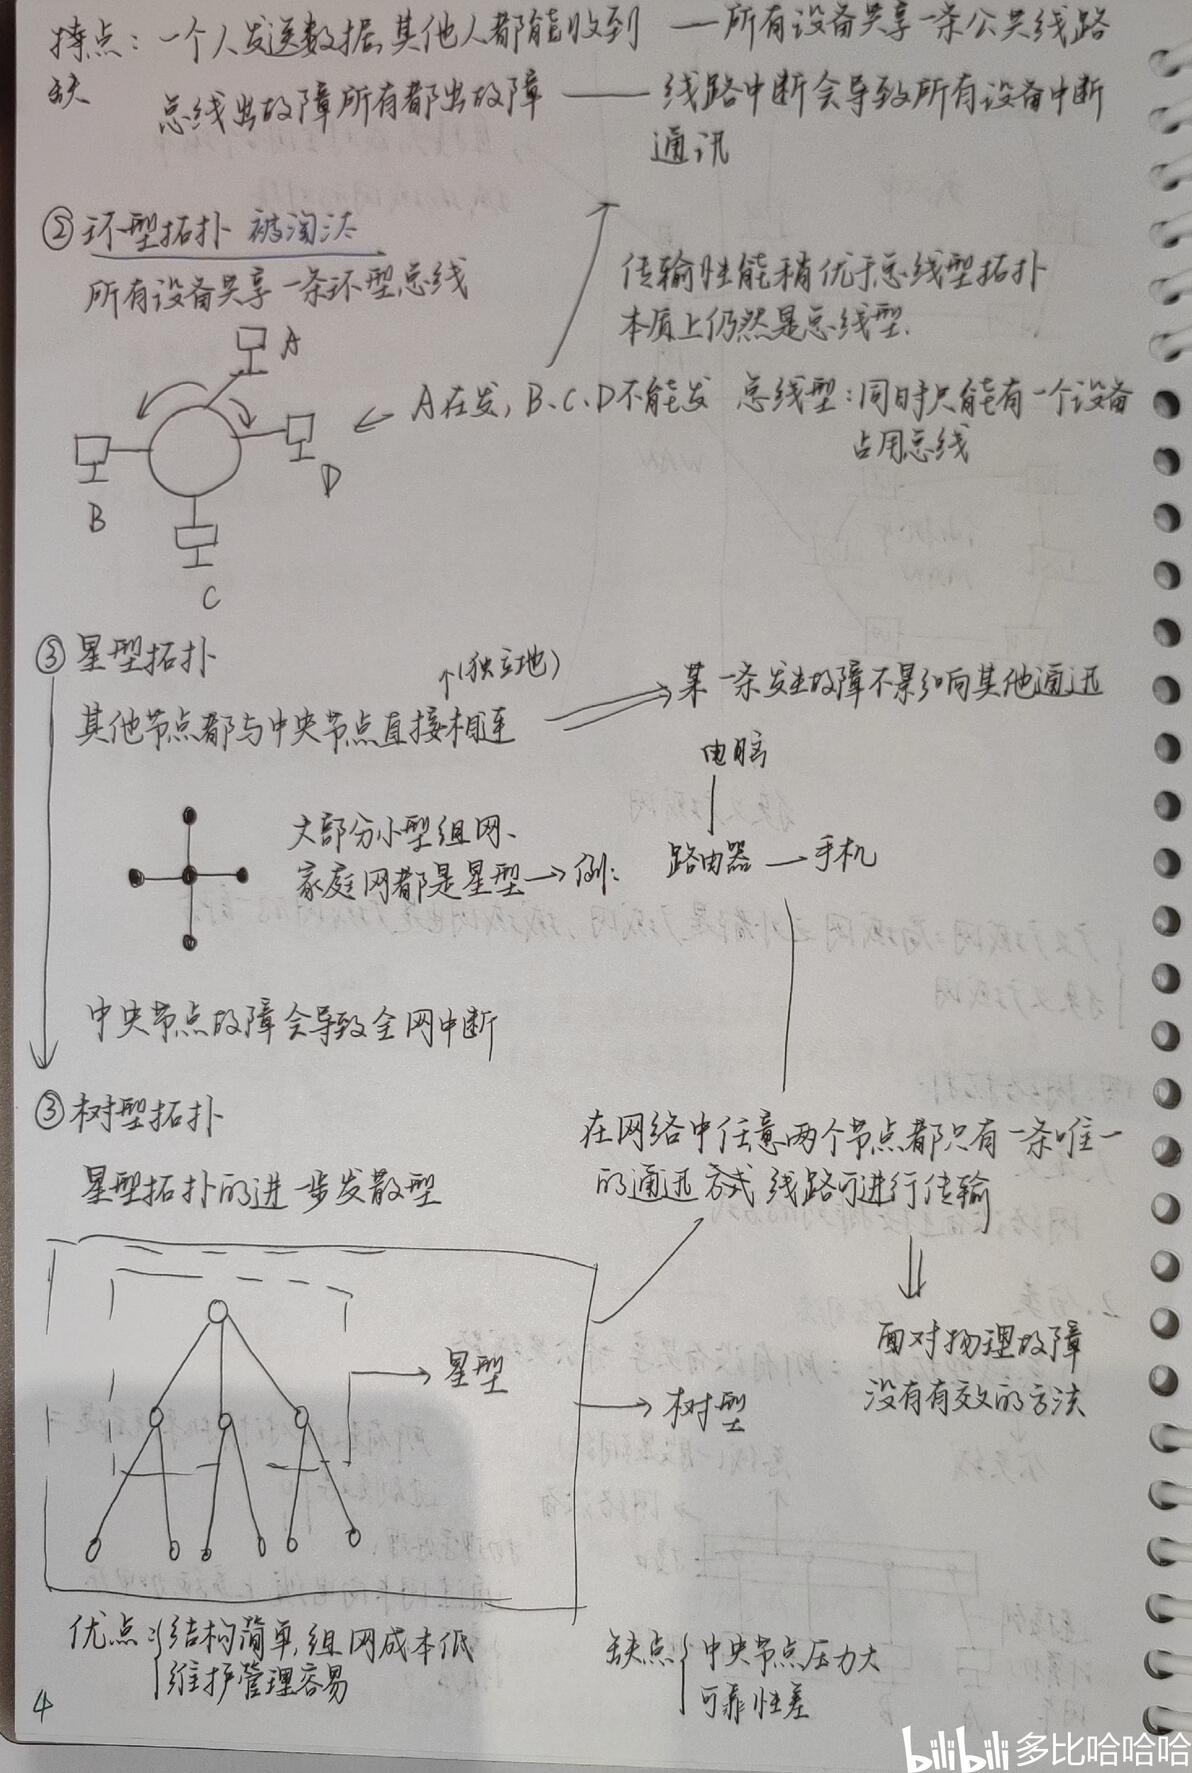 特点：一个人发送数据,其他人都能收到 — 所有设备共享一条公共线路
缺
总线出故障所有都出故障 —— 线路中断会导致所有设备中断
通讯
②环型拓扑 被淘汰
所有设备共享一条环型总线
传输性能稍优于总线型拓扑
本质上仍然是总线型.
A
A在发, B、C、D不能发 总线型:同时只能有一个设备
占用总线
D
B
C
③星型拓扑
(独立地)
其他节点都与中央节点直接相连
某一条发生故障不影响其他通迅
电脑
大部分小型组网、
家庭网都是星型→例:
路由器 — 手机
中央节点故障会导致全网中断
③树型拓扑
星型拓扑的进一步发散型
在网络中任意两个节点都只有一条唯一
的通迅方式 线路可进行传输
面对物理故障
没有有效的方法
星型
树型
优点:{结构简单,组网成本低
维护管理容易
缺点{中央节点压力大
可靠性差
4
bilibili 多比哈哈哈